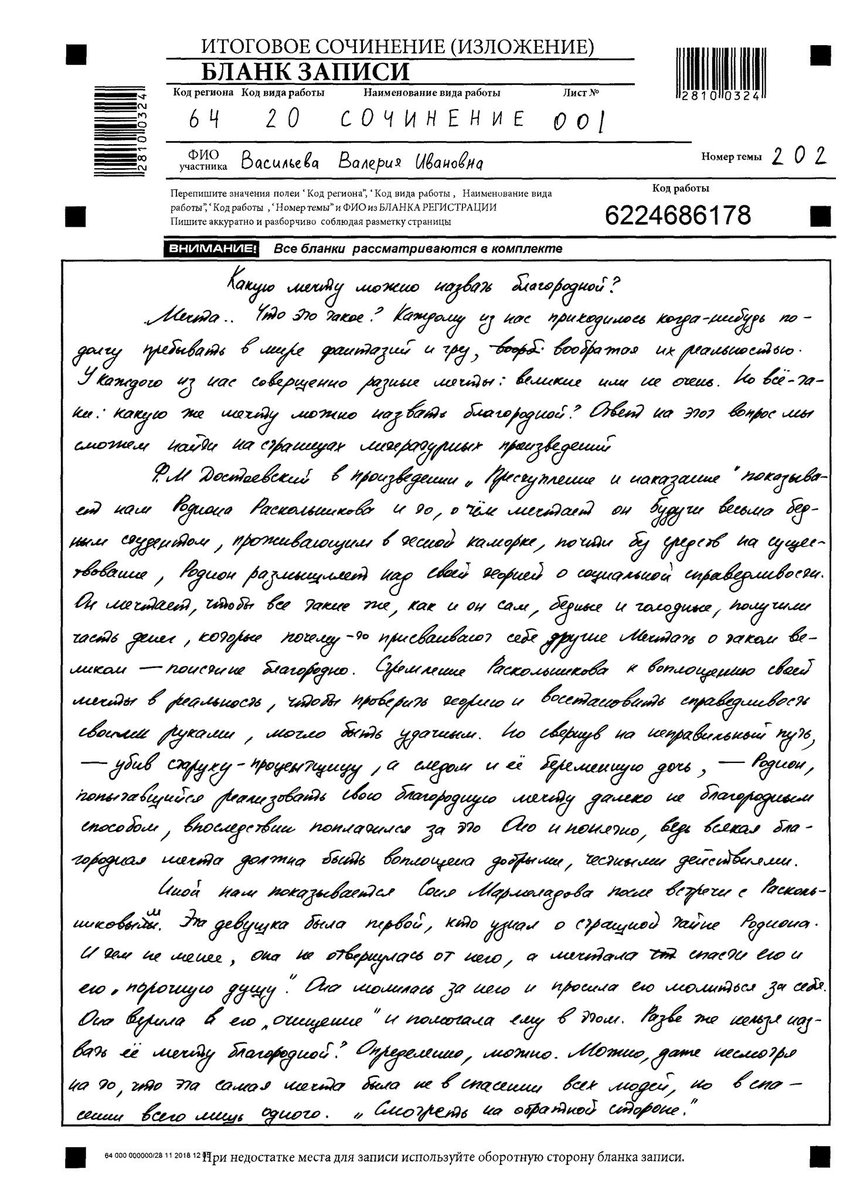 ИТОГОВОЕ СОЧИНЕНИЕ (ИЗЛОЖЕНИЕ)
БЛАНК ЗАПИСИ
2810 0324
2810 0324
Код региона Код вида работы Наименование вида работы Лист №
64 20 СОЧИНЕНИЕ 001
ФИО участника Васильева Валерия Ивановна
Номер темы 202
Перепишите значения полеи "Код региона", "Код вида работы, Наименование вида
работы", "Код работы, "Номер темы" и ФИО из БЛАНКА РЕГИСТРАЦИИ
Пишите аккуратно и разборчиво соблюдая разметку страницы
Код работы
6224686178
ВНИМАНИЕ! Все бланки рассматриваются в комплекте
Какую мечту можно назвать благородной?
Мечта.. Что это такое? Каждому из нас приходилось когда-нибудь по-
долгу пребывать в мире фантазий и грёз, вообр. воображая их реальностью.
У каждого из нас совершенно разные мечты: великие или не очень. Но всё-та-
ки: какую же мечту можно назвать благородной? Ответ на этот вопрос мы
сможем найти на страницах литературных произведений
Ф.М Достоевский в произведении „Приступление и наказание" показыва-
ет нам Родиона Раскольникова и то, о чём мечтает он будучи весьма бед-
ным студентом, проживающим в тесной каморке, почти без средств на сущес-
твование, Родион размышляет над своей теорией о социальной справедливости.
Он мечтает, чтобы все такие же, как и он сам, бедные и голодные, получили
часть денег, которые почему-то присваивают себе другие Мечтать о таком ве-
ликом — поистине благородно. Стремление Раскольникова к воплощению своей
мечты в реальность, чтобы проверить теорию и восстановить справедливость
своими руками, могло быть удачным. Но свернув на неправильный путь,
— убив старуху-процентщицу, а следом и её беременную дочь, — Родион,
попытавшийся реализовать свою благородную мечту далеко не благородным
способом, впоследствии поплатился за это Оно и понятно, ведь всякая бла-
городная мечта должна быть воплощена добрыми, честными действиями.
Иной нам показывается Соня Мармеладова после встречи с Расколь-
никовым. Эта девушка была первой, кто узнал о страшной тайне Родиона.
И тем не менее, она не отвернулась от него, а мечтала сп спасти его и
его „порочную душу". Она молилась за него и просила его молиться за себя.
Она верила в его „очищение" и помогала ему в этом. Разве же нельзя наз-
вать её мечту благородной? Определенно, можно. Можно, даже несмотря
на то, что эта самая мечта была не в спасении всех людей, но в спа-
сении всего лишь одного. „Смотреть на обратной стороне."
64 000 000000/28 11 2018 12
При недостатке места для записи используйте оборотную сторону бланка записи.